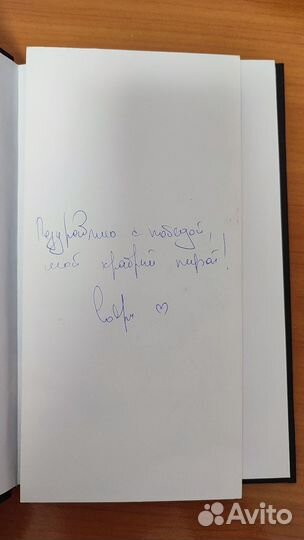 Поздравляю с победой,
мой храбрий пират!
Avito